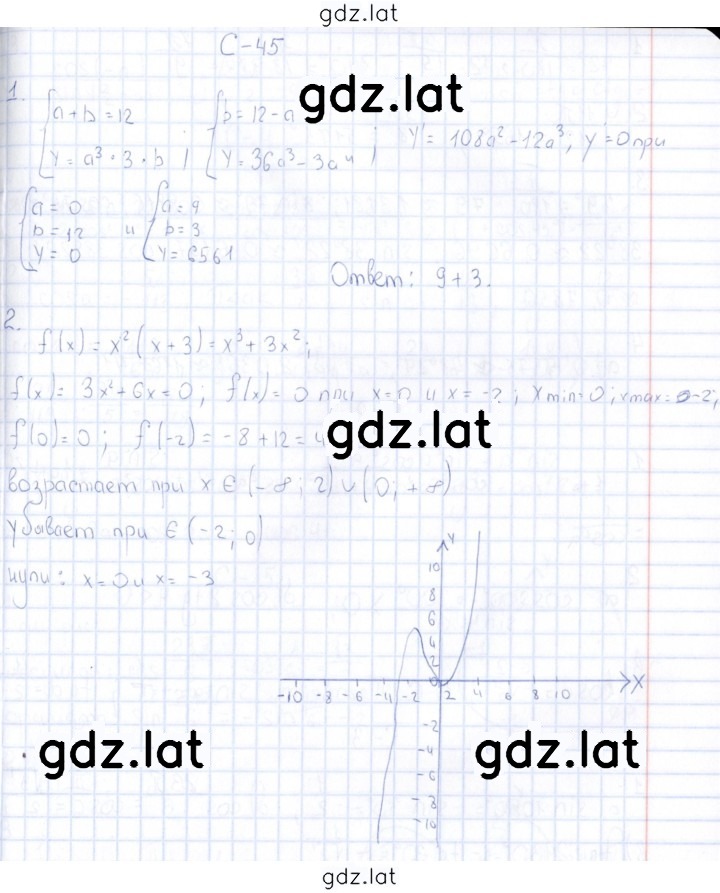 gdz.lat
С-45
gdz.lat
1. { a + b = 12 { b = 12 - a
y = a³ · 3 · b ; y = 36a³ - 3a⁴ ; y' = 108a² - 12a³; y' = 0 при
{ a = 0 { a = 9
b = 12 и b = 3
y = 0 y = 6561
Ответ: 9 + 3.
2.
f(x) = x² (x + 3) = x³ + 3x²;
f(x) = 3x² + 6x = 0; f(x) = 0 при x = 0 и x = -2; xmin = 0; xmax = -2;
f(0) = 0; f(-2) = -8 + 12 = 4
gdz.lat
возрастает при x ∈ (-∞; 2) ∪ (0; +∞)
убывает при ∈ (-2; 0)
нули: x = 0 и x = -3
y
10
8
6
4
2
0
-10 -8 -6 -4 -2 2 4 6 8 10 X
-2
-4
-6
-8
-10
gdz.lat gdz.lat
gdz.lat